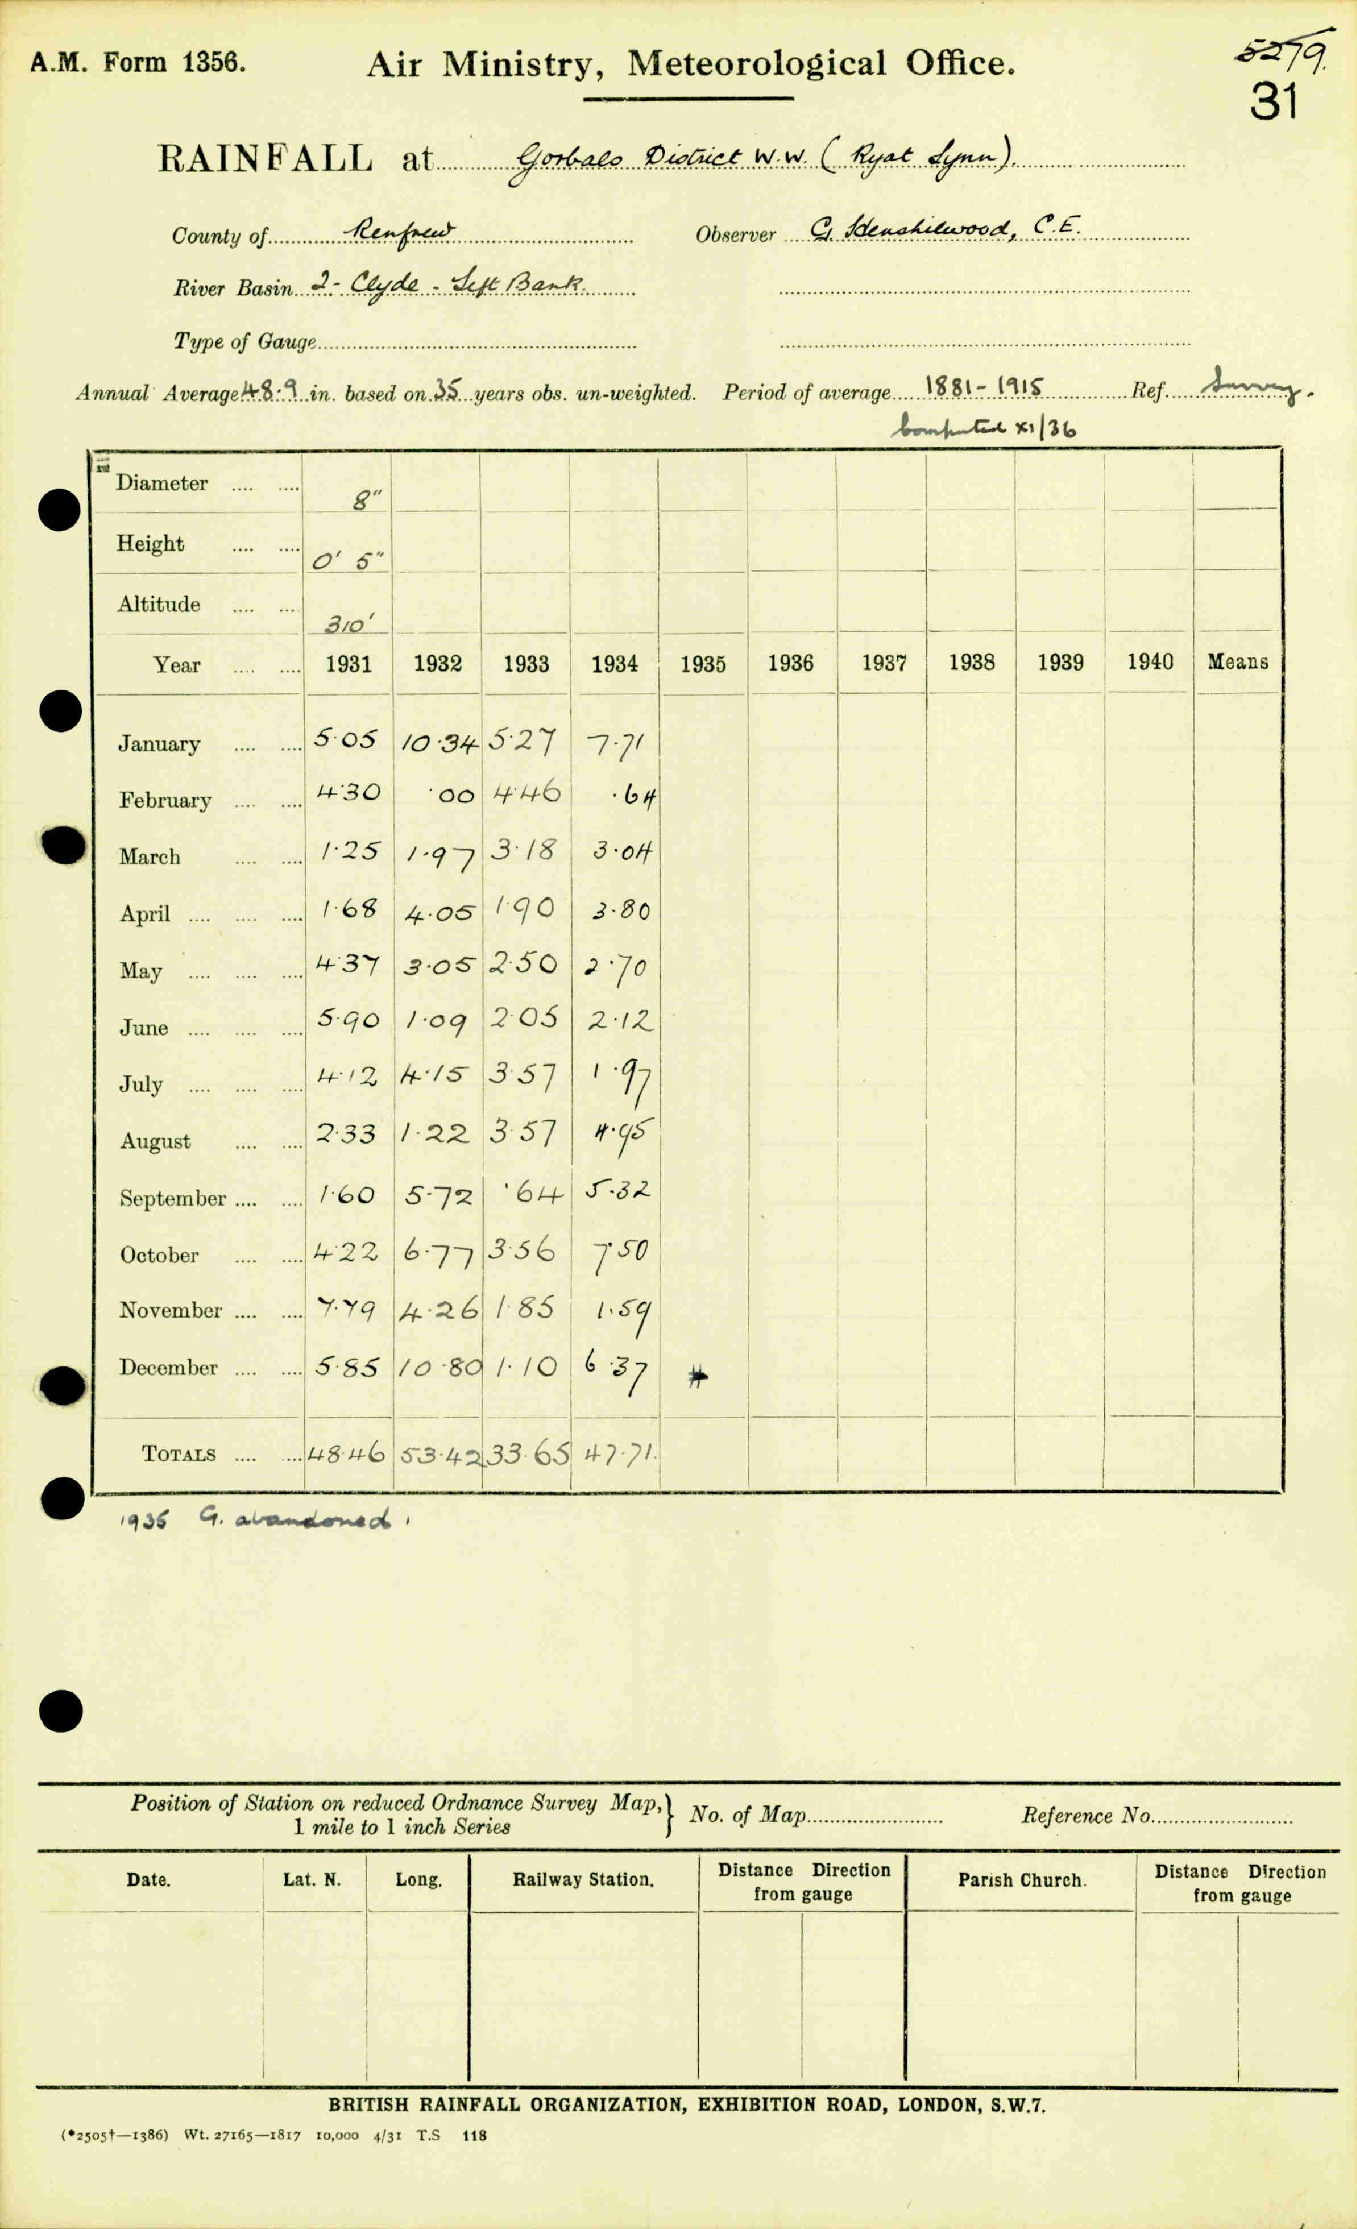 A.M. Form 1356. Air Ministry, Meteorological Office. 5279.
31
RAINFALL at Gorbals District W.W. ( Ryat Lynn).
County of Renfrew Observer G. Henshilwood, C.E.
River Basin 2- Clyde - Left Bank.
Type of Gauge
Annual Average 48.9 in. based on 35 years obs. un-weighted. Period of average 1881-1915 Ref. Survey.
Computed XI/36
Diameter 8"
Height 0' 5"
Altitude 310'
Year 1931 1932 1933 1934 1935 1936 1937 1938 1939 1940 Means
January 5.05 10.34 5.27 7.71
February 4.30 .00 4.46 .64
March 1.25 1.97 3.18 3.04
April 1.68 4.05 1.90 3.80
May 4.37 3.05 2.50 2.70
June 5.90 1.09 2.05 2.12
July 4.12 4.15 3.57 1.97
August 2.33 1.22 3.57 4.95
September 1.60 5.72 .64 5.32
October 4.22 6.77 3.56 7.50
November 7.79 4.26 1.85 1.59
December 5.85 10.80 1.10 6.37 #
TOTALS 48.46 53.42 33.65 47.71.
1935 G. abandoned.
Position of Station on reduced Ordnance Survey Map, } No. of Map Reference No.
1 mile to 1 inch Series
Date. Lat. N. Long. Railway Station. Distance Direction from gauge Parish Church. Distance Direction from gauge
BRITISH RAINFALL ORGANIZATION, EXHIBITION ROAD, LONDON, S.W.7.
(*2505†—1386) Wt. 27165—1817 10,000 4/31 T.S 118